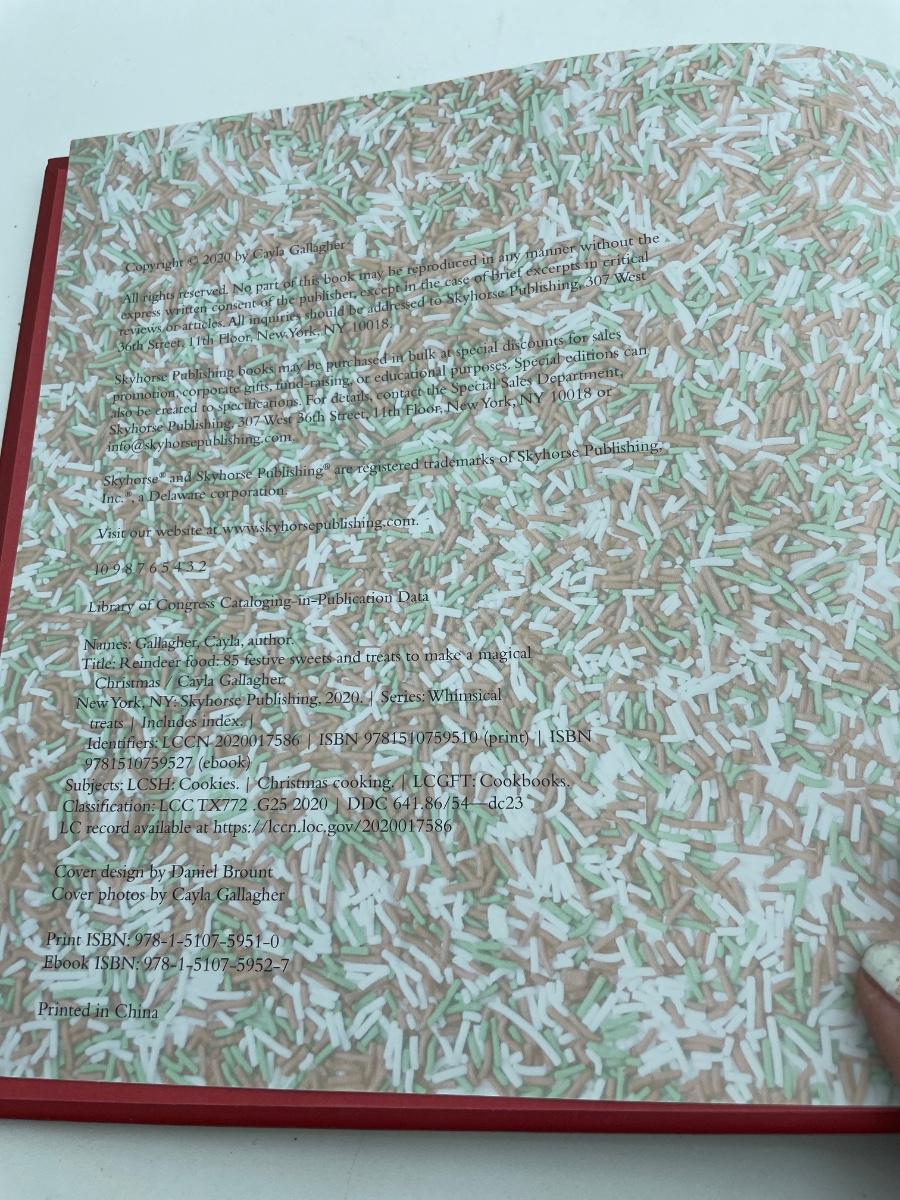 Copyright © 2020 by Cayla Gallagher
All rights reserved. No part of this book may be reproduced in any manner without the
express written consent of the publisher, except in the case of brief excerpts in critical
reviews or articles. All inquiries should be addressed to Skyhorse Publishing, 307 West
36th Street, 11th Floor, New York, NY 10018.
Skyhorse Publishing books may be purchased in bulk at special discounts for sales
promotion, corporate gifts, fund-raising, or educational purposes. Special editions can
also be created to specifications. For details, contact the Special Sales Department,
Skyhorse Publishing, 307 West 36th Street, 11th Floor, New York, NY 10018 or
info@skyhorsepublishing.com.
Skyhorse® and Skyhorse Publishing® are registered trademarks of Skyhorse Publishing,
Inc.®, a Delaware corporation.
Visit our website at www.skyhorsepublishing.com.
10 9 8 7 6 5 4 3 2
Library of Congress Cataloging-in-Publication Data
Names: Gallagher, Cayla, author.
Title: Reindeer food: 85 festive sweets and treats to make a magical
Christmas / Cayla Gallagher.
New York, NY: Skyhorse Publishing, 2020. | Series: Whimsical
treats | Includes index. |
Identifiers: LCCN 2020017586 | ISBN 9781510759510 (print) | ISBN
9781510759527 (ebook)
Subjects: LCSH: Cookies. | Christmas cooking. | LCGFT: Cookbooks.
Classification: LCC TX772 .G25 2020 | DDC 641.86/54—dc23
LC record available at https://lccn.loc.gov/2020017586
Cover design by Daniel Brount
Cover photos by Cayla Gallagher
Print ISBN: 978-1-5107-5951-0
Ebook ISBN: 978-1-5107-5952-7
Printed in China